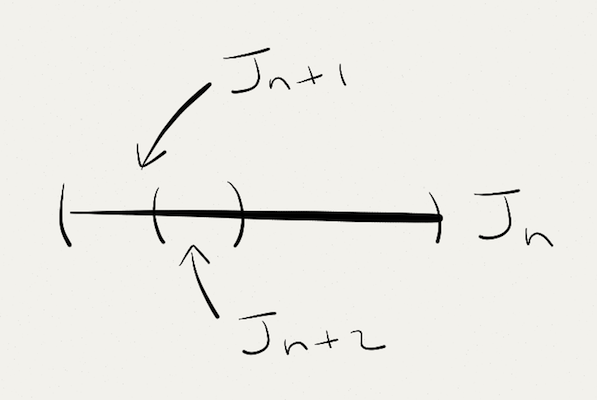 Jn+1
( ( ) ) Jn
Jn+2